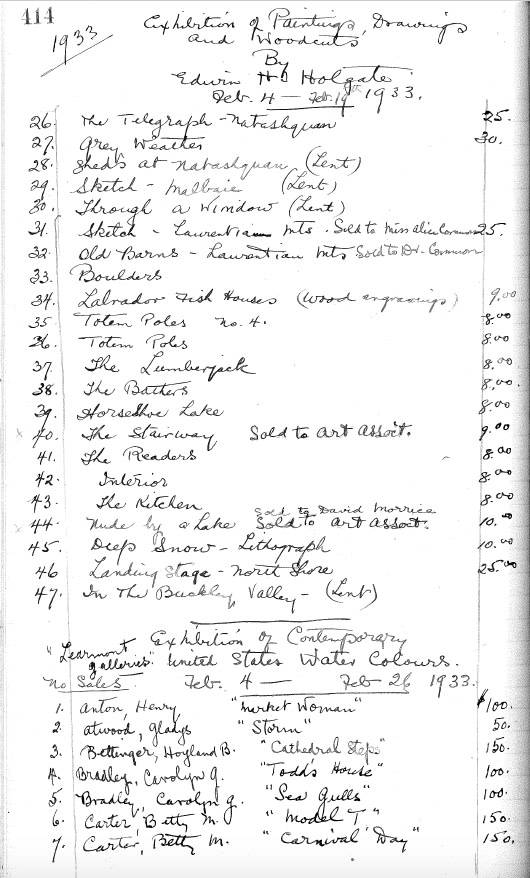 414
1933
Exhibition of Paintings, Drawings
and Woodcuts
By
Edwin H. Holgate
Feb. 4 — Feb. 19th 1933.
26. The Telegraph - Natashquan 25.
27. Grey Weather 30.
28. Sheds at Natashquan (Lent)
29. Sketch - Malbaie (Lent)
30. Through a Window (Lent)
31. Sketch - Laurentian Mts. Sold to Miss Alice 25.
32. Old Barns - Laurentian Mts Sold to Dr.
33. Boulders
34. Labrador Fish Houses (Wood engravings) 9.00
35 Totem Poles No. 4. 8.00
36. Totem Poles 8.00
37. The Lumberjack 8.00
38. The Bathers 8.00.
39. Horseshoe Lake 8.00
x 40. The Stairway Sold to Art Assoct. 9.00
41. The Readers 8.00
42. Interior 8.00
43. The Kitchen 8.00
Sold to David Morrice
x 44. Nude by a Lake Sold to Art Assoct. 10.00
45. Deep Snow - Lithograph 10.00
46 Landing Stage - North Shore 25.00
47. In The Buckley Valley - (Lent)
Exhibition of Contemporary
"Learmont galleries" United States Water Colours.
No Sales. Feb. 4 — Feb 26 1933.
1. Anton, Henry "Market Woman" $100.
2. Atwood, Gladys "Storm" 50.
3. Bettinger, Hoyland B. "Cathedral Steps" 150.
4. Bradley, Carolyn G. "Todd's House" 100.
5. Bradley, Carolyn G. "Sea Gulls" 100.
6. Carter, Betty M. "Model T" 150.
7. Carter, Betty M. "Carnival Day" 150.